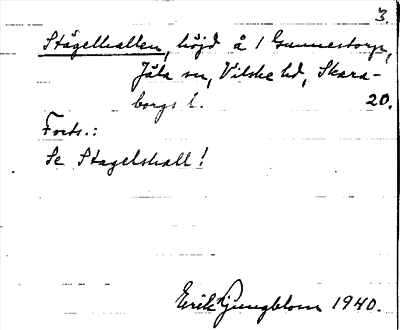 3.
Stägelhallen, höjd å 1 Gunnestorp,
Jäla sn, Vilske hd, Skara-
borgs l. 20.
Forts.:
Se Stagelshall!
Erik Ljungblom 1940.